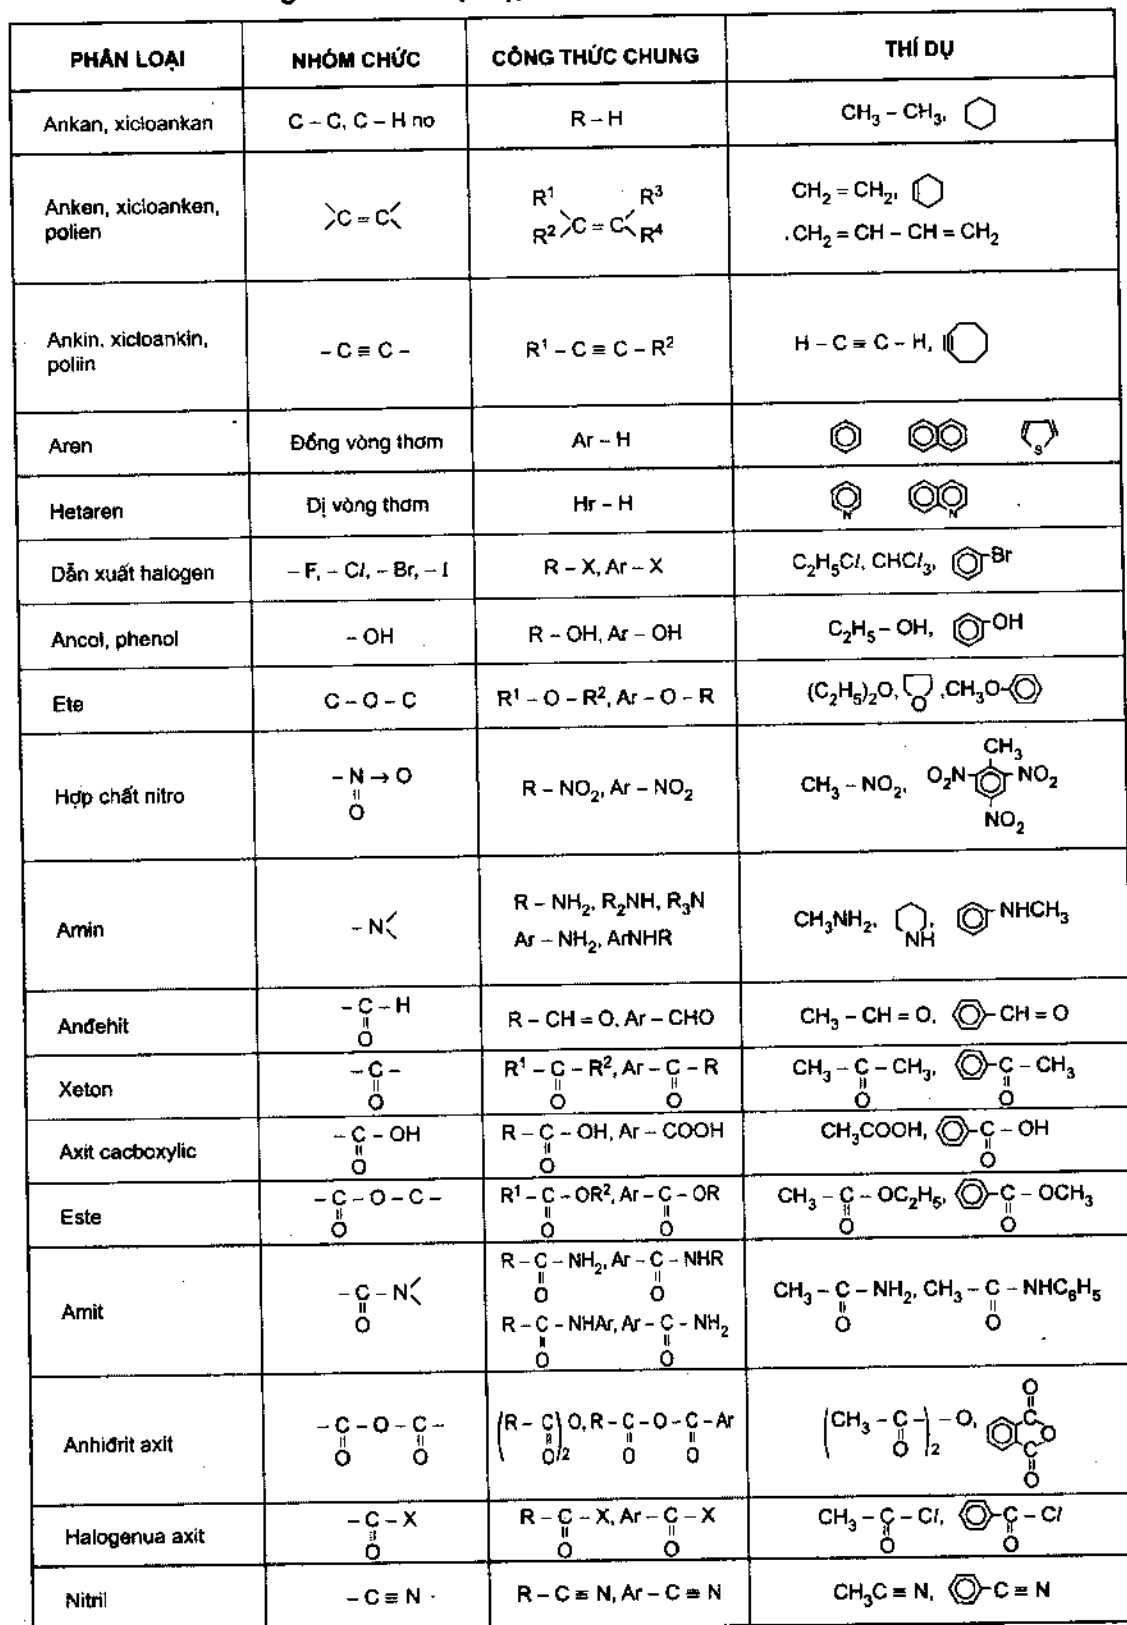 PHÂN LOẠI NHÓM CHỨC CÔNG THỨC CHUNG THÍ DỤ
Ankan, xicloankan C – C, C – H no R – H CH₃ – CH₃,
Anken, xicloanken, polien >C = C< R¹ R² >C = C< R³ R⁴ CH₂ = CH₂,
.CH₂ = CH – CH = CH₂
Ankin, xicloankin, poliin – C ≡ C – R¹ – C ≡ C – R² H – C ≡ C – H,
Aren Đồng vòng thơm Ar – H S
Hetaren Dị vòng thơm Hr – H N N
Dẫn xuất halogen – F, – Cl, – Br, – I R – X, Ar – X C₂H₅Cl, CHCl₃, Br
Ancol, phenol – OH R – OH, Ar – OH C₂H₅ – OH, OH
Ete C – O – C R¹ – O – R², Ar – O – R (C₂H₅)₂O, O ,CH₃O
Hợp chất nitro – N → O
=
O R – NO₂, Ar – NO₂ CH₃ – NO₂, CH₃ O₂N NO₂ NO₂
Amin – N< R – NH₂, R₂NH, R₃N
Ar – NH₂, ArNHR CH₃NH₂, NH, NHCH₃
Anđehit – C – H
O R – CH = O, Ar – CHO CH₃ – CH = O, CH = O
Xeton – C –
O R¹ – C – R², Ar – C – R
O O CH₃ – C – CH₃, C – CH₃
O O
Axit cacboxylic – C – OH
O R – C – OH, Ar – COOH
O CH₃COOH, C – OH
O
Este – C – O – C –
O R¹ – C – OR², Ar – C – OR
O O CH₃ – C – OC₂H₅, C – OCH₃
O O
Amit – C – N<
O R – C – NH₂, Ar – C – NHR
O O
R – C – NHAr, Ar – C – NH₂
O O CH₃ – C – NH₂, CH₃ – C – NHC₆H₅
O O
Anhiđrit axit – C – O – C –
O O (R – C)₂ O, R – C – O – C – Ar
O O O (CH₃ – C –)₂ – O, O O O
O
Halogenua axit – C – X
O R – C – X, Ar – C – X
O O CH₃ – C – Cl, C – Cl
O O
Nitril – C ≡ N R – C ≡ N, Ar – C ≡ N CH₃C ≡ N, C ≡ N